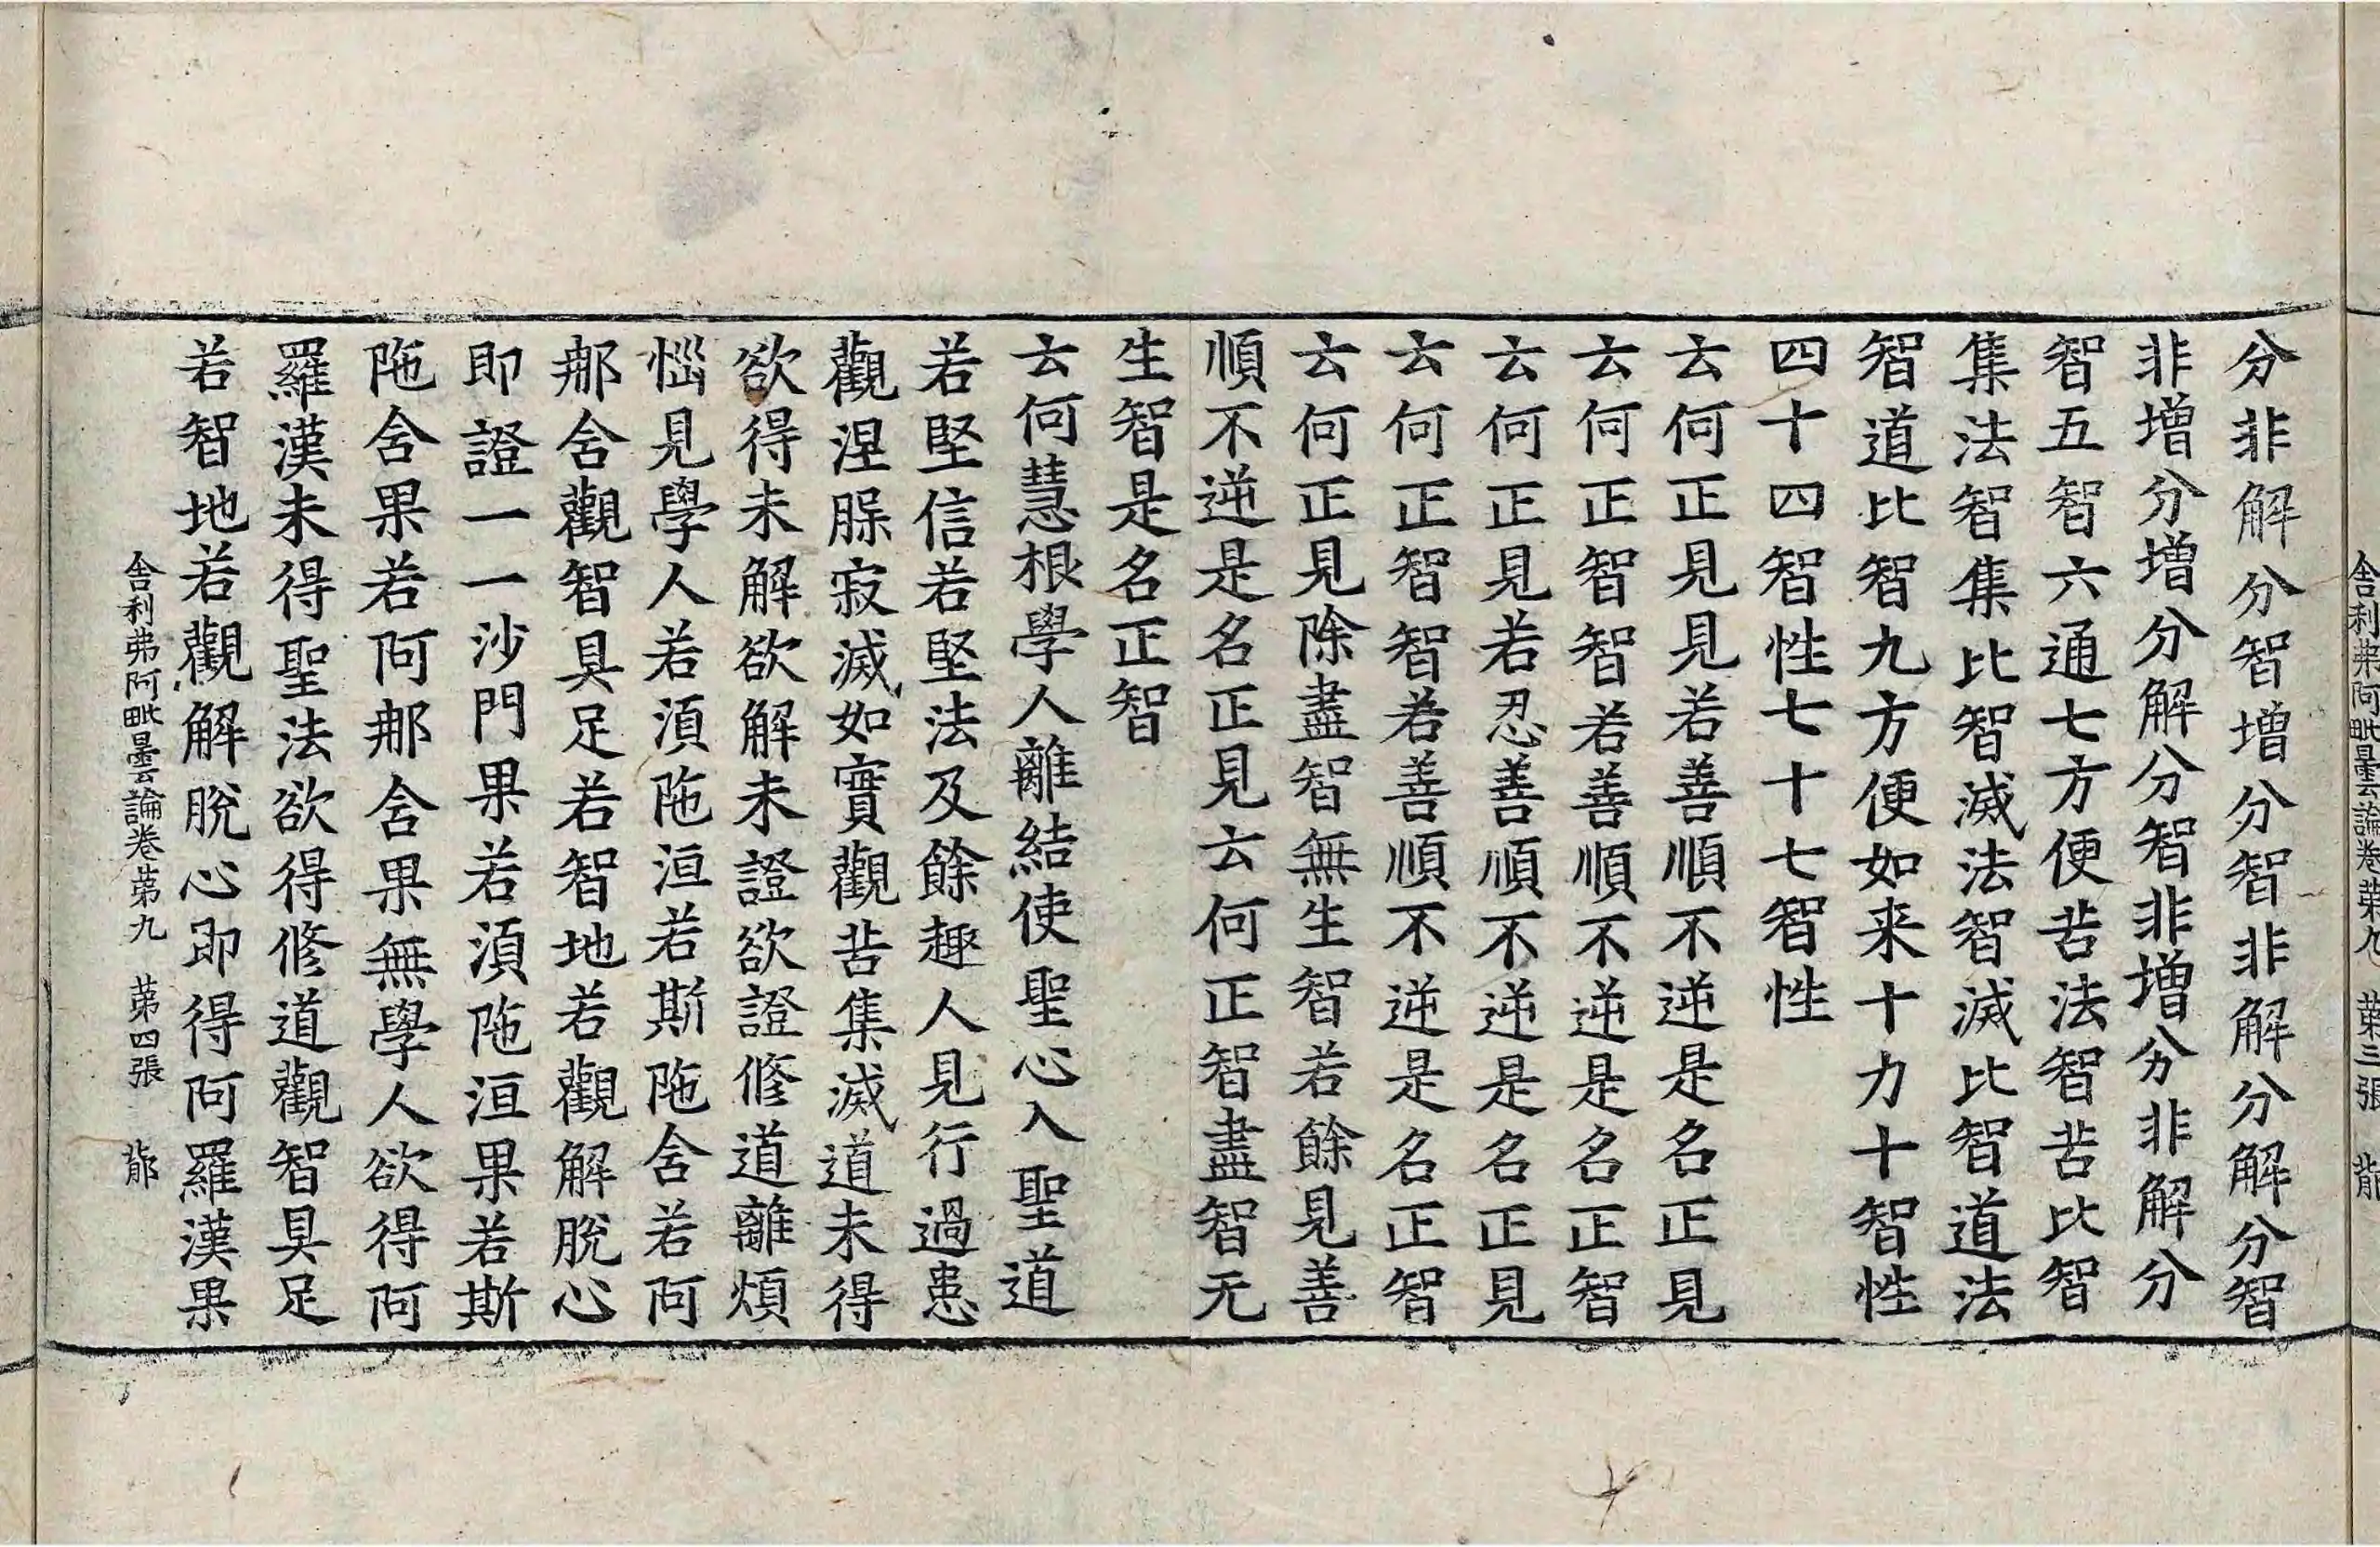 舎利弗阿毗曇論卷苐九 苐三張
分非解分智增分智非解分解分智
非增分增分解分智非增分非解分
智五智六通七方便苦法智苦比智
集法智集比智滅法智滅比智道法
智道比智九方便如来十力十智性
四十四智性七十七智性
云何正見見若善順不逆是名正見
云何正智智若善順不逆是名正智
云何正見若忍善順不逆是名正見
云何正智智若善順不逆是名正智
云何正見除盡智無生智若餘見善
順不逆是名正見云何正智盡智无
生智是名正智
云何慧根學人離結使聖心入聖道
若堅信若堅法及餘趣人見行過患
觀涅槃寂滅如實觀苦集滅道未得
欲得未解欲解未證欲證修道離煩
惱見學人若湏陁洹若斯陁舍若阿
那舍觀智具足若智地若觀解脫心
即證一一沙門果若湏陁洹果若斯
陁舍果若阿那舍果無學人欲得阿
羅漢未得聖法欲得修道觀智具足
若智地若觀解脫心即得阿羅漢果
舎利弗阿毗曇論卷苐九 苐四張